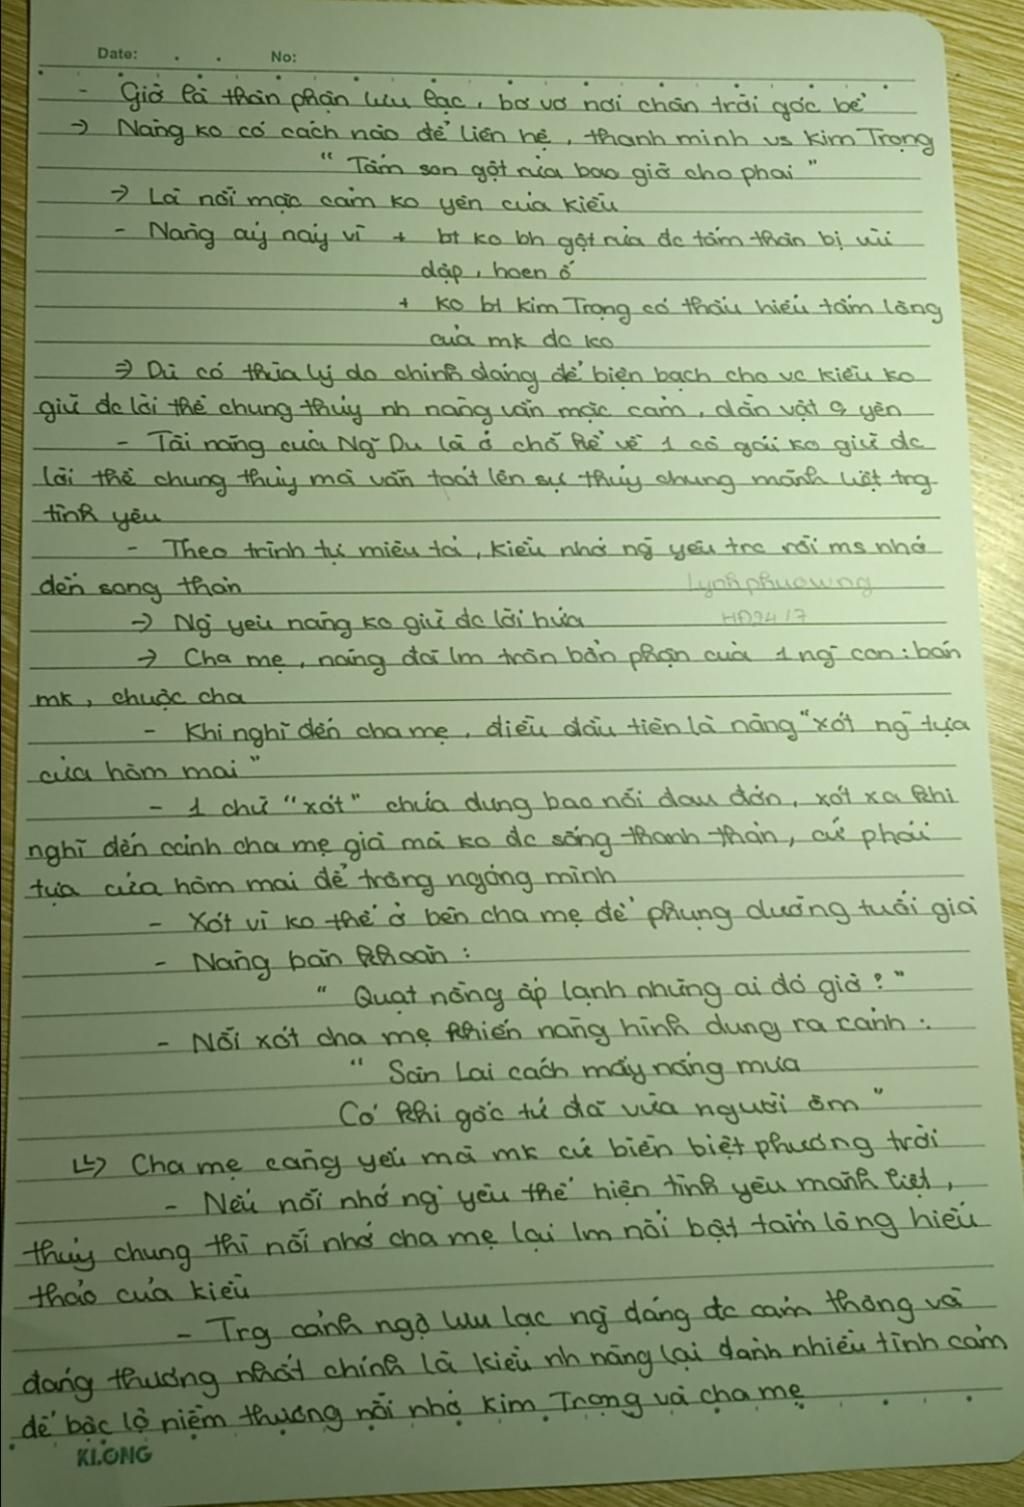 Date: . . No:
- Giờ là thân phận lưu lạc, bơ vơ nơi chân trời góc bể
→ Nàng ko có cách nào để liên hệ, thanh minh vs Kim Trọng
" Tấm son gột rửa bao giờ cho phai "
→ Là nỗi mặc cảm ko yên của Kiều
- Nàng áy náy vì + bt ko bh gột rửa đc tấm thân bị vùi
dập, hoen ố
+ ko bt Kim Trọng có thấu hiểu tấm lòng
của mk đc ko
⇒ Dù có thừa lý do chính đáng để biện bạch cho vc Kiều ko
giữ đc lời thề chung thủy nh nàng vẫn mặc cảm, dằn vặt yên
- Tài năng của Ng~ Du là ở chỗ kể về 1 cô gái ko giữ đc
lời thề chung thủy mà vẫn toát lên sự thủy chung mãnh liệt trg
tình yêu
- Theo trình tự miêu tả, Kiều nhớ ng~ yêu trc rồi ms nhớ
đến song thân
lynhphuowng
→ Ng` yêu nàng ko giữ đc lời hứa
HĐ24 17
→ Cha mẹ, nàng đã lm tròn bổn phận của 1 ng~ con : bán
mk, chuộc cha
- Khi nghĩ đến cha mẹ, điều đầu tiên là nàng "xót ng~ tựa
cửa hôm mai"
- 1 chữ "xót" chứa đựng bao nỗi đau đớn, xót xa khi
nghĩ đến cảnh cha mẹ già mà ko đc sống thanh thản, cứ phải
tựa cửa hôm mai để trông ngóng mình
- Xót vì ko thể ở bên cha mẹ để phụng dưỡng tuổi già
- Nàng băn khoăn :
" Quạt nồng ấp lạnh những ai đó giờ ? "
- Nỗi xót cha mẹ khiến nàng hình dung ra cảnh :
" Sân Lai cách mấy nắng mưa
Có khi gốc tử đã vừa người ôm "
↳ Cha mẹ càng yếu mà mk cứ biền biệt phương trời
- Nếu nỗi nhớ ng` yêu thể hiện tình yêu mãnh liệt,
thủy chung thì nỗi nhớ cha mẹ lại lm nổi bật tấm lòng hiếu
thảo của Kiều
- Trg cảnh ngộ lưu lạc ng~ đáng đc cảm thông và
đáng thương nhất chính là Kiều nh nàng lại dành nhiều tình cảm
để bộc lộ niềm thương nỗi nhớ Kim Trọng và cha mẹ
KLONG